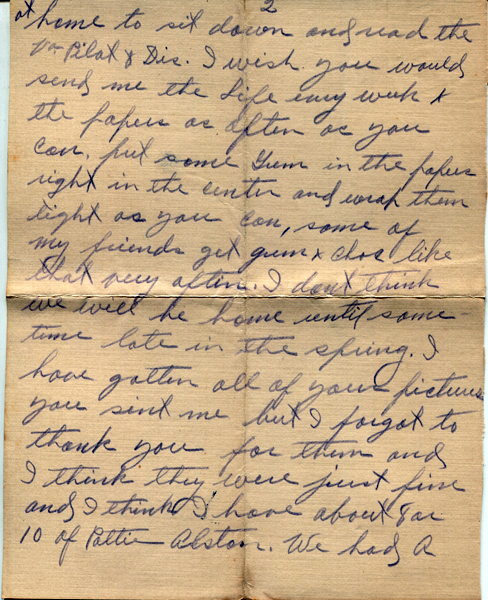 2
at home to sit down and read the
Va Pilot & Dis. I wish you would
send me the Life evry week &
the papers as often as you
can. put some Gum in the papers
right in the center and wrap them
tight as you can, some of
my friends get gum & chos like
that very often. I don't think
we will be home until some-
time late in the spring. I
have gotten all of your pictures
you sint me but I forgot to
thank you for them and
I think they were just fine
and I think I have about 8 or
10 of Pattie Alston. We had a